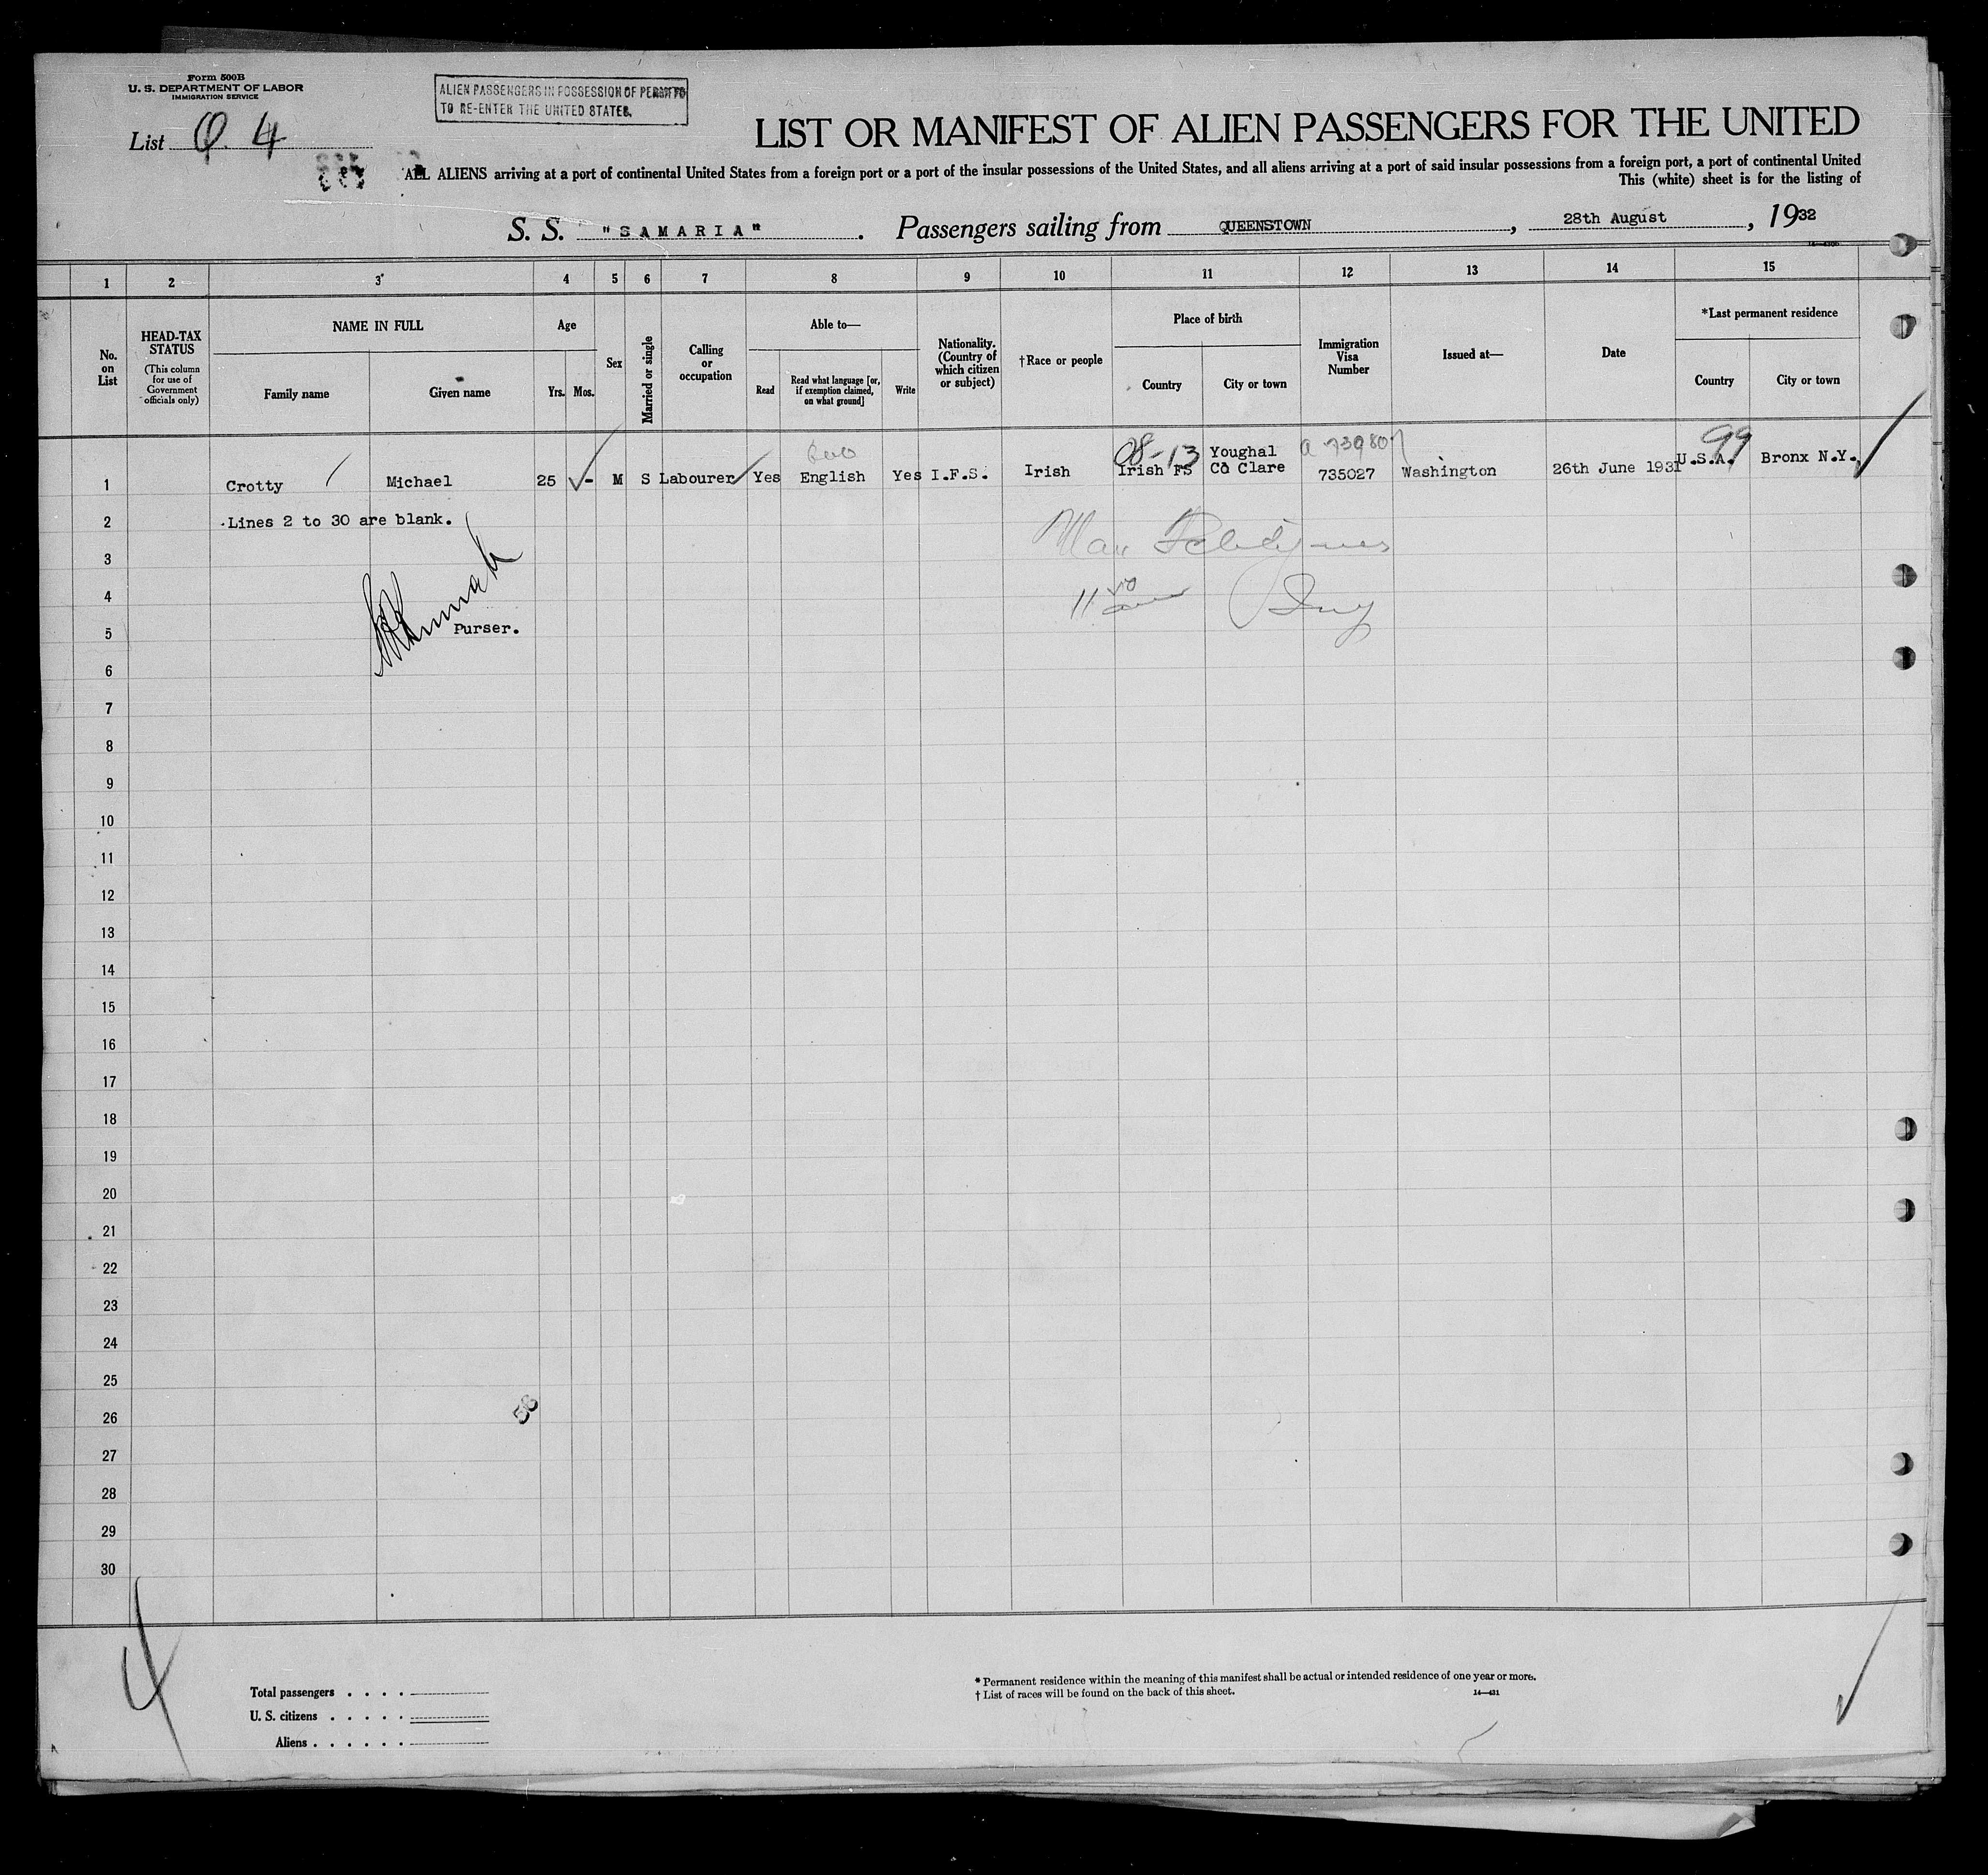 Form 500B
U. S. DEPARTMENT OF LABOR
IMMIGRATION SERVICE
ALIEN PASSENGERS IN POSSESSION OF PERMIT TO
TO RE-ENTER THE UNITED STATES.
List Q. 4
LIST OR MANIFEST OF ALIEN PASSENGERS FOR THE UNITED
ALL ALIENS arriving at a port of continental United States from a foreign port or a port of the insular possessions of the United States, and all aliens arriving at a port of said insular possessions from a foreign port, a port of continental United
This (white) sheet is for the listing of
S. S. "SAMARIA". Passengers sailing from QUEENSTOWN, 28th August, 1932
1 2 3 4 5 6 7 8 9 10 11 12 13 14 15
No. on List
HEAD-TAX STATUS
(This column for use of Government officials only)
NAME IN FULL
Family name Given name
Age
Yrs. Mos.
Sex
Married or single
Calling or occupation
Able to—
Read
Read what language [or, if exemption claimed, on what ground]
Write
Nationality. (Country of which citizen or subject)
†Race or people
Place of birth
Country City or town
Immigration Visa Number
Issued at—
Date
*Last permanent residence
Country City or town
08-13 99
1 Crotty Michael 25 - M S Labourer Yes English Yes I.F.S. Irish Irish FS Youghal Co Clare 735027 Washington 26th June 1931 U.S.A. Bronx N.Y.
2 Lines 2 to 30 are blank.
3
4
5 Purser.
6
7
8
9
10
11
12
13
14
15
16
17
18
19
20
21
22
23
24
25
26
58
27
28
29
30
4
Total passengers . . . .
U. S. citizens . . . . .
Aliens . . . . . .
* Permanent residence within the meaning of this manifest shall be actual or intended residence of one year or more.
† List of races will be found on the back of this sheet.
14—431